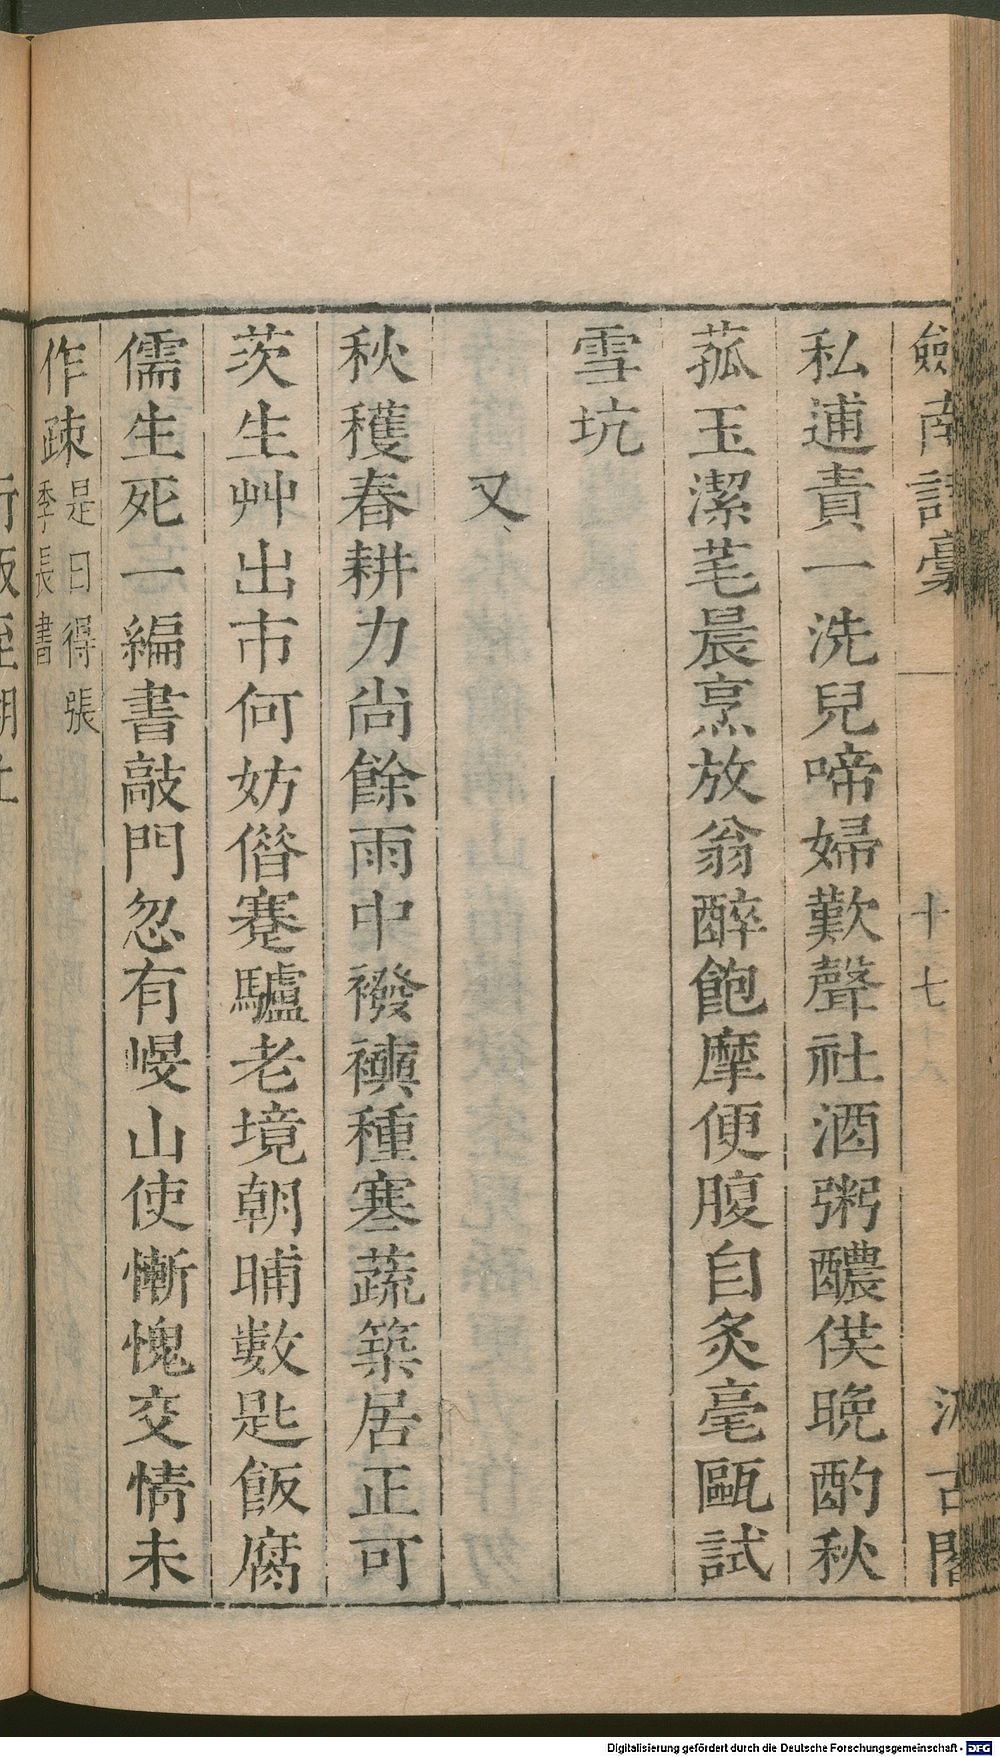 劍南詩稾 十七 汲古閣
私逋責一洗兒啼婦歎聲社酒粥醲僕晚酌秋
菰玉潔芼晨烹放翁醉飽摩便腹自炙毫甌試
雪坑
又
秋穫春耕力尚餘雨中襏襫種寒蔬築居正可
茨生艸出市何妨僭蹇驢老境朝晡數匙飯腐
儒生死一編書敲門忽有嵕山使慚愧交情未
作疎 是日得張
季長書